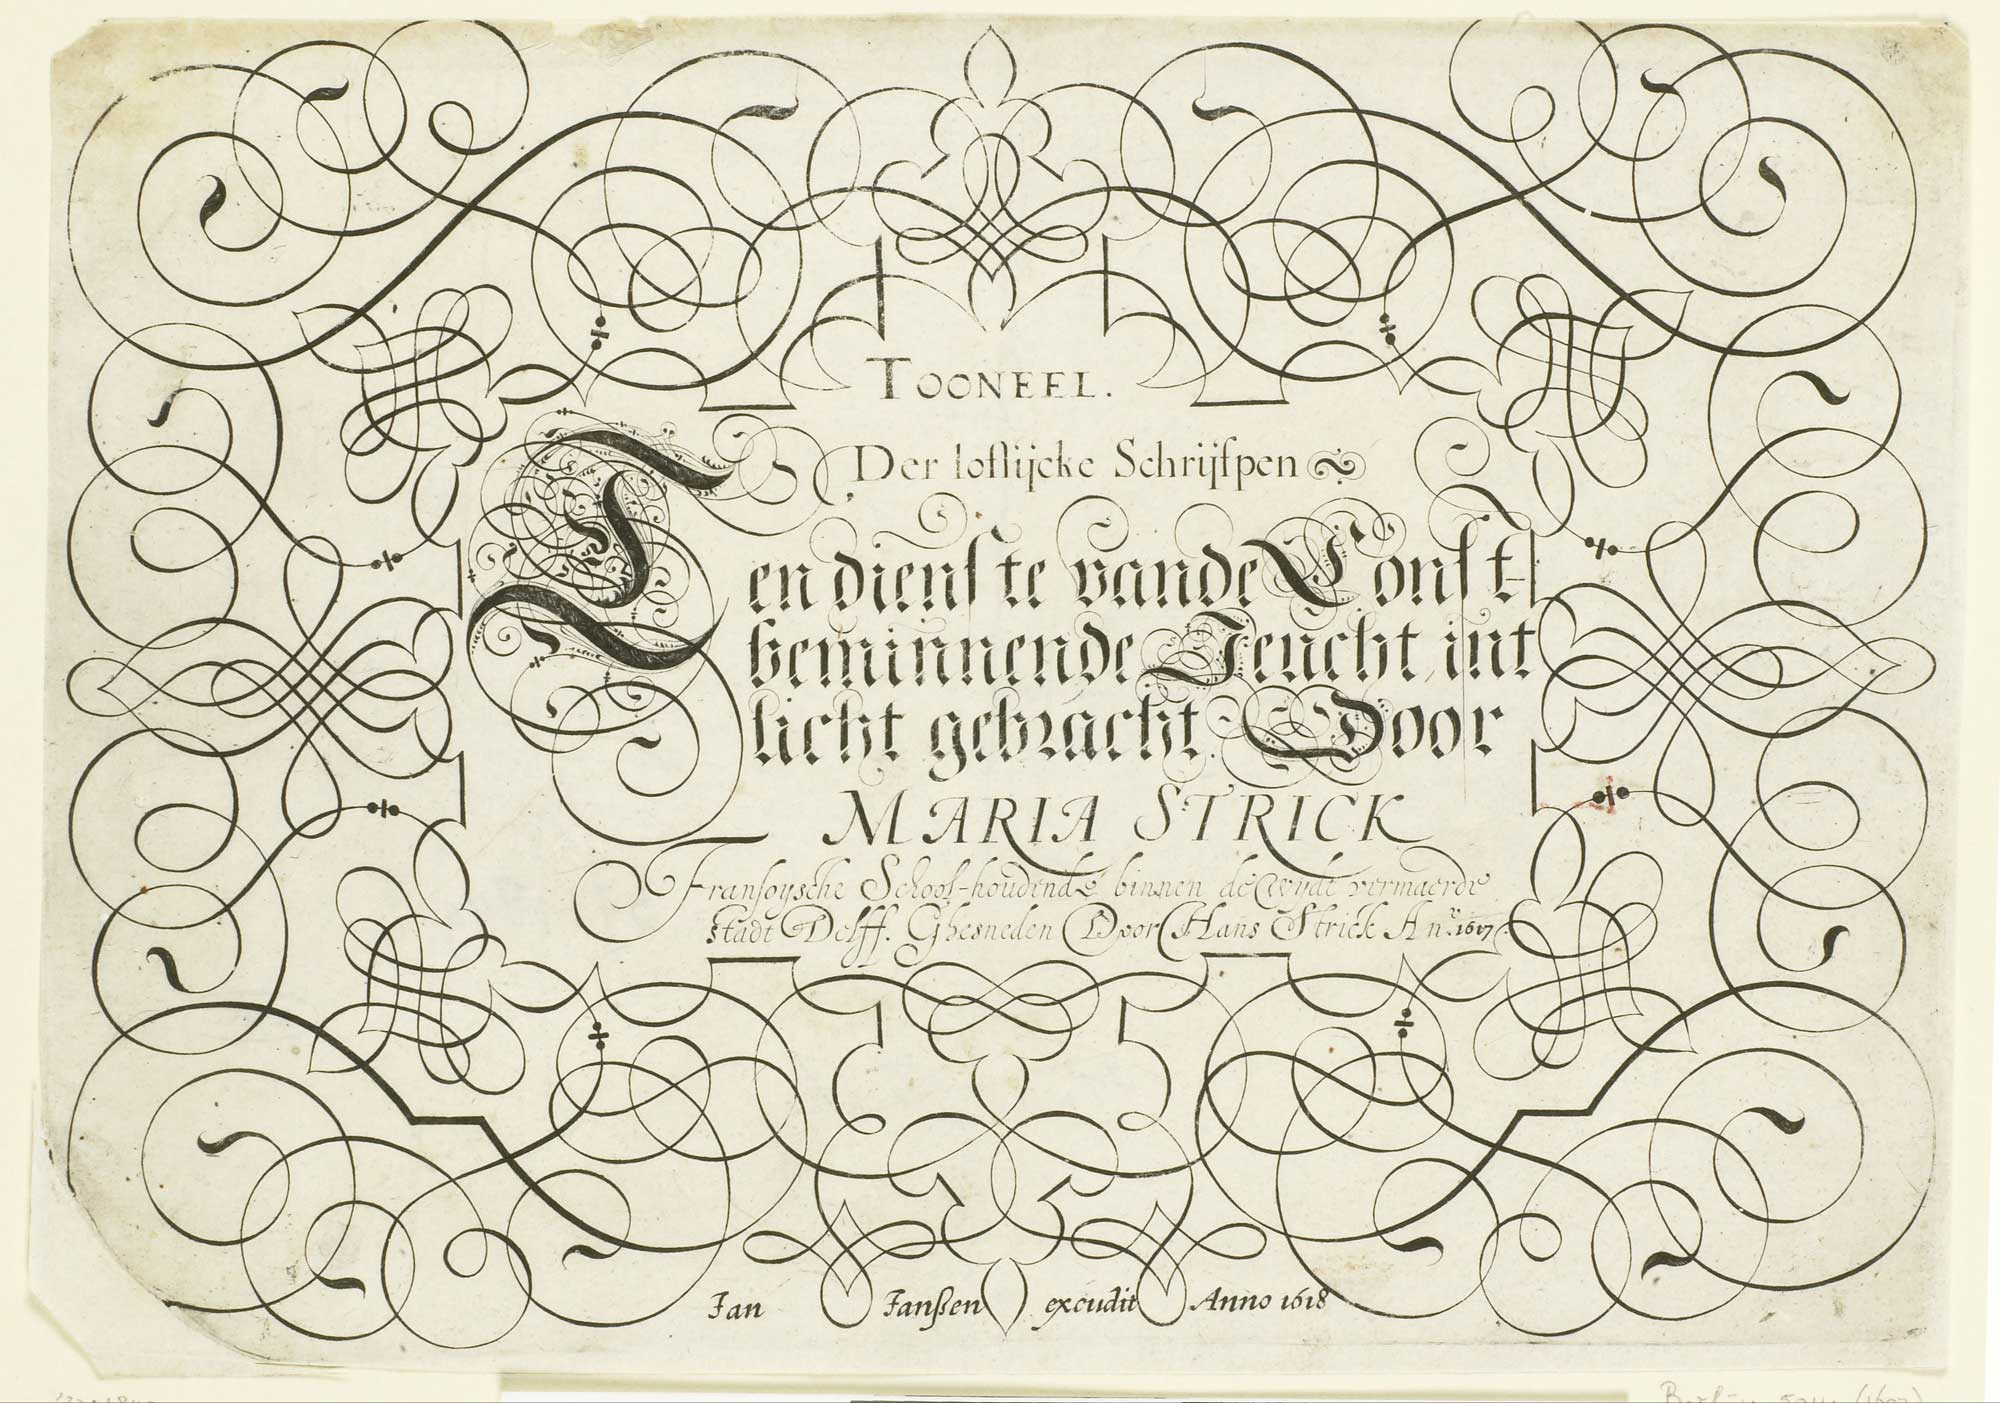 TOONEEL.
Der loflijcke Schrijfpen
Ten dienste vande Const
beminnende Jeucht, int
licht gebracht. Door
MARIA STRICK
Fransoysche School-houdende binnen de wyde vermaerde
stadt Delff. Ghesneden Door Hans Strick An.º 1617
Jan Janßen excudit Anno 1618